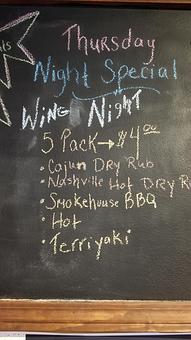 Thursday
Night Special
Wing Night
5 Pack→$4.00
• Cajun Dry Rub
• Nashville Hot Dry
• Smokehouse BBQ
• Hot
• Terriyaki